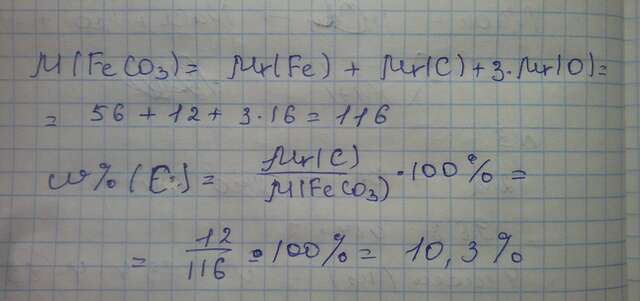 M(FeCO₃) = Mr(Fe) + Mr(C) + 3·Mr(O) =
= 56 + 12 + 3·16 = 116
ω%(C) = Mr(C)/M(FeCO₃) · 100% =
= 12/116 · 100% = 10,3%